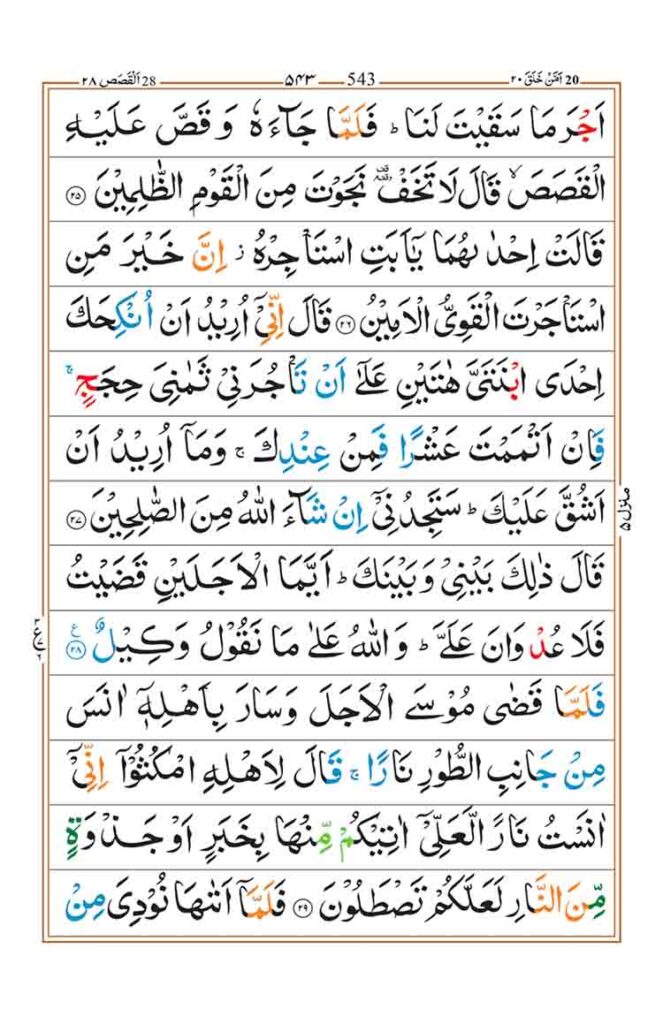 28 اَلْقَصَص ٢٨ ۵۴۳ 543 20 اَمَّنْ خَلَقَ ٢٠
اَجْرَ مَا سَقَيْتَ لَنَا ؕ فَلَمَّا جَآءَهٗ وَ قَصَّ عَلَيْهِ
الْقَصَصَ ۙ قَالَ لَا تَخَفْ ٝ۫ نَجَوْتَ مِنَ الْقَوْمِ الظّٰلِمِيْنَ ۲۵
قَالَتْ اِحْدٰىهُمَا يٰۤاَبَتِ اسْتَاْجِرْهُ ؗ اِنَّ خَيْرَ مَنِ
اسْتَاْجَرْتَ الْقَوِيُّ الْاَمِيْنُ ۲۶ قَالَ اِنِّيْۤ اُرِيْدُ اَنْ اُنْكِحَكَ
اِحْدَى ابْنَتَيَّ هٰتَيْنِ عَلٰۤى اَنْ تَاْجُرَنِيْ ثَمٰنِيَ حِجَجٍ ۚ
فَاِنْ اَتْمَمْتَ عَشْرًا فَمِنْ عِنْدِكَ ۚ وَمَاۤ اُرِيْدُ اَنْ
اَشُقَّ عَلَيْكَ ؕ سَتَجِدُنِيْۤ اِنْ شَآءَ اللّٰهُ مِنَ الصّٰلِحِيْنَ ۲۷
قَالَ ذٰلِكَ بَيْنِيْ وَبَيْنَكَ ؕ اَيَّمَا الْاَجَلَيْنِ قَضَيْتُ
فَلَا عُدْوَانَ عَلَيَّ ؕ وَاللّٰهُ عَلٰى مَا نَقُوْلُ وَكِيْلٌ ۲۸ ع
فَلَمَّا قَضٰى مُوْسَى الْاَجَلَ وَسَارَ بِاَهْلِهٖۤ اٰنَسَ
مِنْ جَانِبِ الطُّوْرِ نَارًا ۚ قَالَ لِاَهْلِهِ امْكُثُوْۤا اِنِّيْۤ
اٰنَسْتُ نَارًا لَّعَلِّيْۤ اٰتِيْكُمْ مِّنْهَا بِخَبَرٍ اَوْ جَذْوَةٍ
مِّنَ النَّارِ لَعَلَّكُمْ تَصْطَلُوْنَ ۲۹ فَلَمَّاۤ اَتٰىهَا نُوْدِيَ مِنْ
منزل ۵